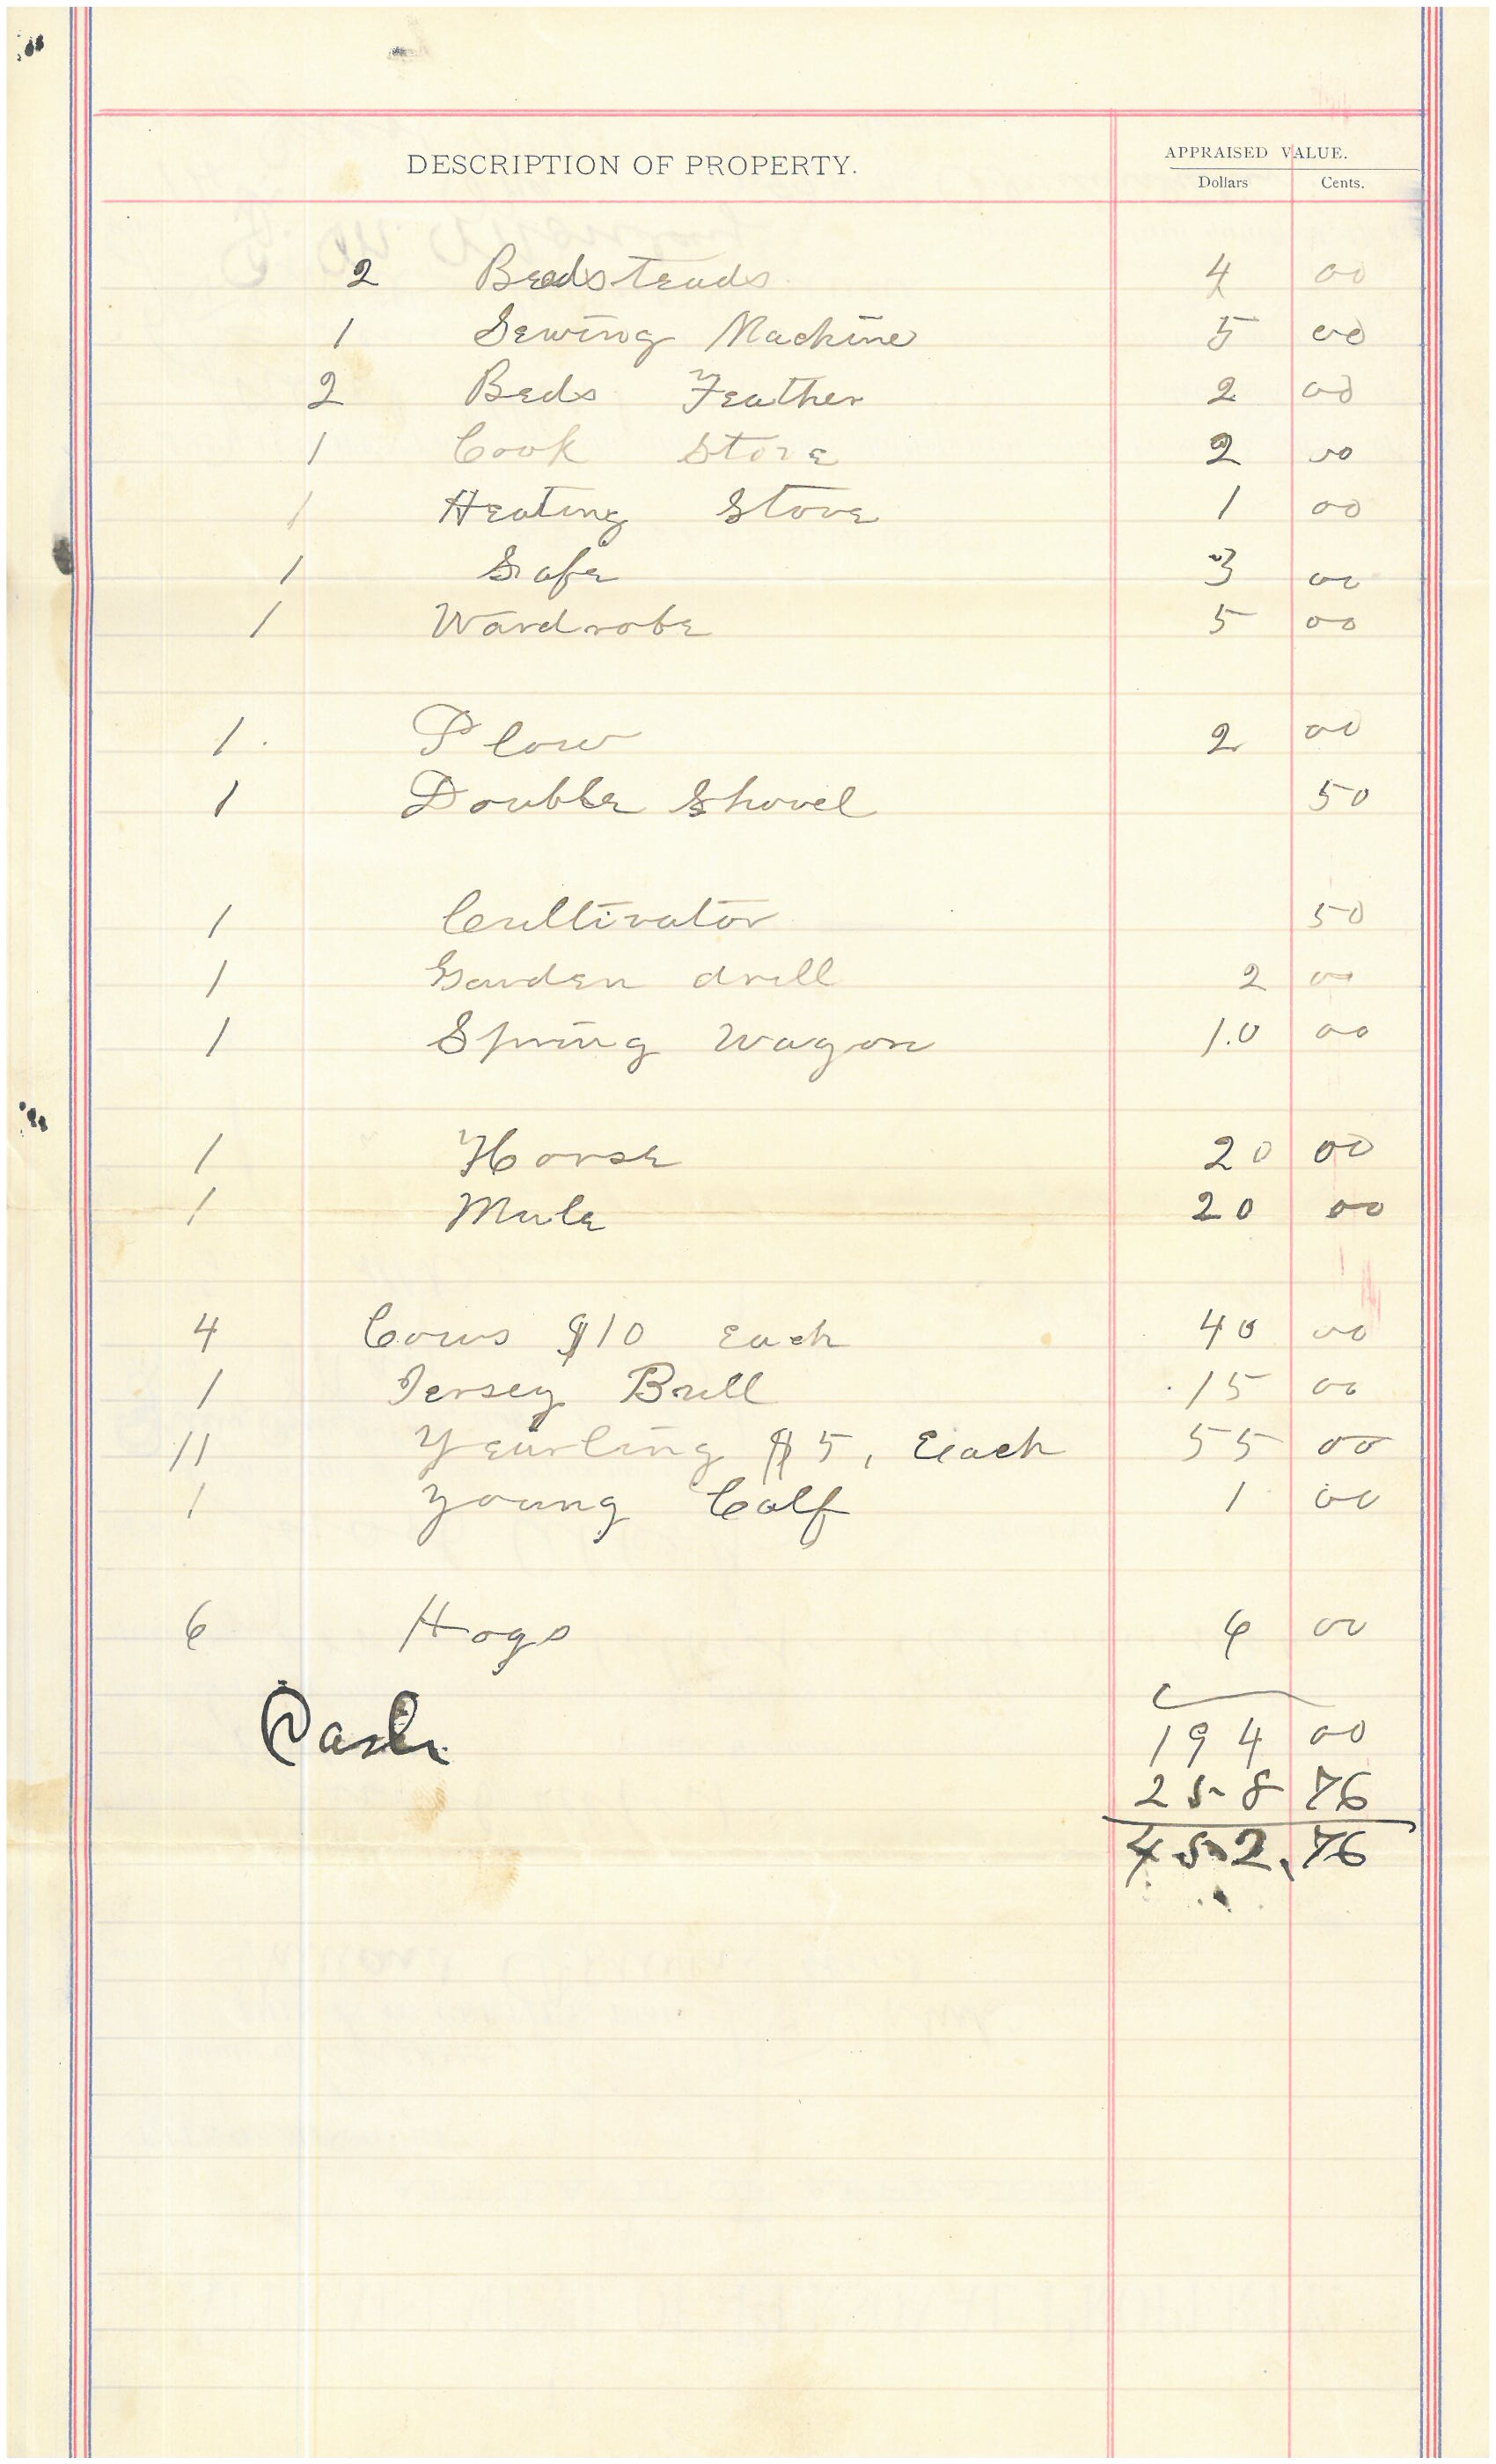 DESCRIPTION OF PROPERTY. APPRAISED VALUE.
Dollars Cents.
2 Bedsteads 4 00
1 Sewing Machine 5 00
2 Beds Feather 2 00
1 Cook Stove 2 00
1 Heating Stove 1 00
1 Safe 3 00
1 Wardrobe 5 00
1 Plow 2 00
1 Double Shovel 50
1 Cultivator 50
1 Garden drill 2 00
1 Spring Wagon 10 00
1 Horse 20 00
1 Mule 20 00
4 Cows $10 Each 40 00
1 Jersey Bull 15 00
11 Yearling $5, Each 55 00
1 Young Calf 1 00
6 Hogs 6 00
194 00
Cash 258 76
452.76